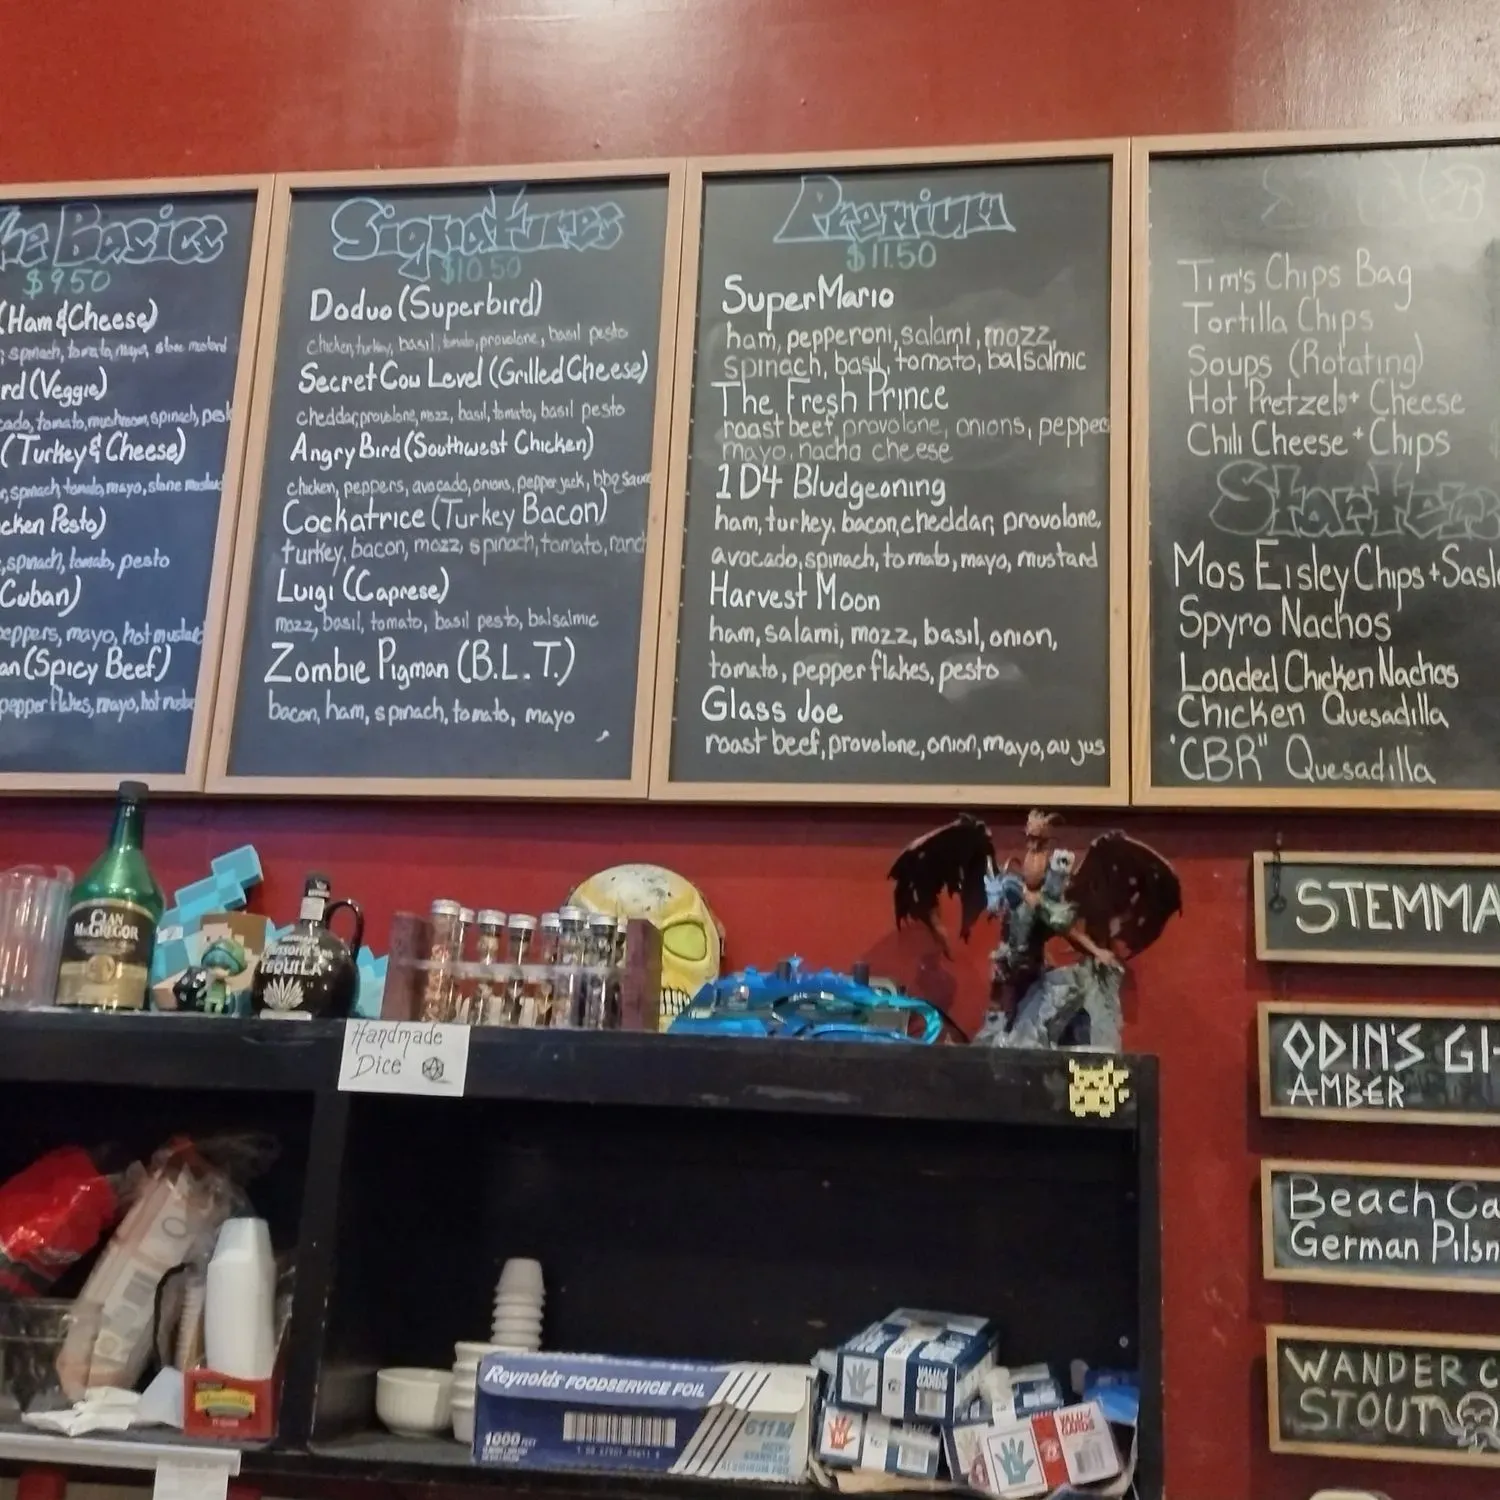 The Basics
$9.50
(Ham & Cheese)
spinach, tomato, mayo, stone mustard
(Veggie)
tomato, mushroom, spinach,
(Turkey & Cheese)
spinach, tomato, mayo, stone
Pesto)
spinach, tomato, pesto
Cuban)
peppers, mayo, hot
(Spicy Beef)
pepper flakes, mayo, hot
Signatures
$10.50
Doduo (Superbird)
chicken, turkey, basil, tomato, provolone, basil pesto
Secret Cow Level (Grilled Cheese)
cheddar, provolone, mozz, basil, tomato, basil pesto
Angry Bird (Southwest Chicken)
chicken, peppers, avocado, onions, pepper jack, bbq sauce
Cockatrice (Turkey Bacon)
turkey, bacon, mozz, spinach, tomato, ranch
Luigi (Caprese)
mozz, basil, tomato, basil pesto, balsalmic
Zombie Pigman (B.L.T.)
bacon, ham, spinach, tomato, mayo
Premium
$11.50
Super Mario
ham, pepperoni, salami, mozz,
spinach, basil, tomato, balsalmic
The Fresh Prince
roast beef, provolone, onions,
mayo, nacho cheese
1D4 Bludgeoning
ham, turkey, bacon, cheddar, provolone,
avocado, spinach, tomato, mayo, mustard
Harvest Moon
ham, salami, mozz, basil, onion,
tomato, pepper flakes, pesto
Glass Joe
roast beef, provolone, onion, mayo, au jus
Tim's Chips Bag
Tortilla Chips
Soups (Rotating)
Hot Pretzels + Cheese
Chili Cheese + Chips
Starters
Mos Eisley Chips +
Spyro Nachos
Loaded Chicken Nachos
Chicken Quesadilla
"CBR" Quesadilla
STEMMA
ODIN'S
AMBER
Beach
German
WANDER
STOUT
CLAN
MACGREGOR
TEQUILA
Handmade
Dice
Reynolds FOODSERVICE FOIL
1000 FEET
611M
VALU
GARDS